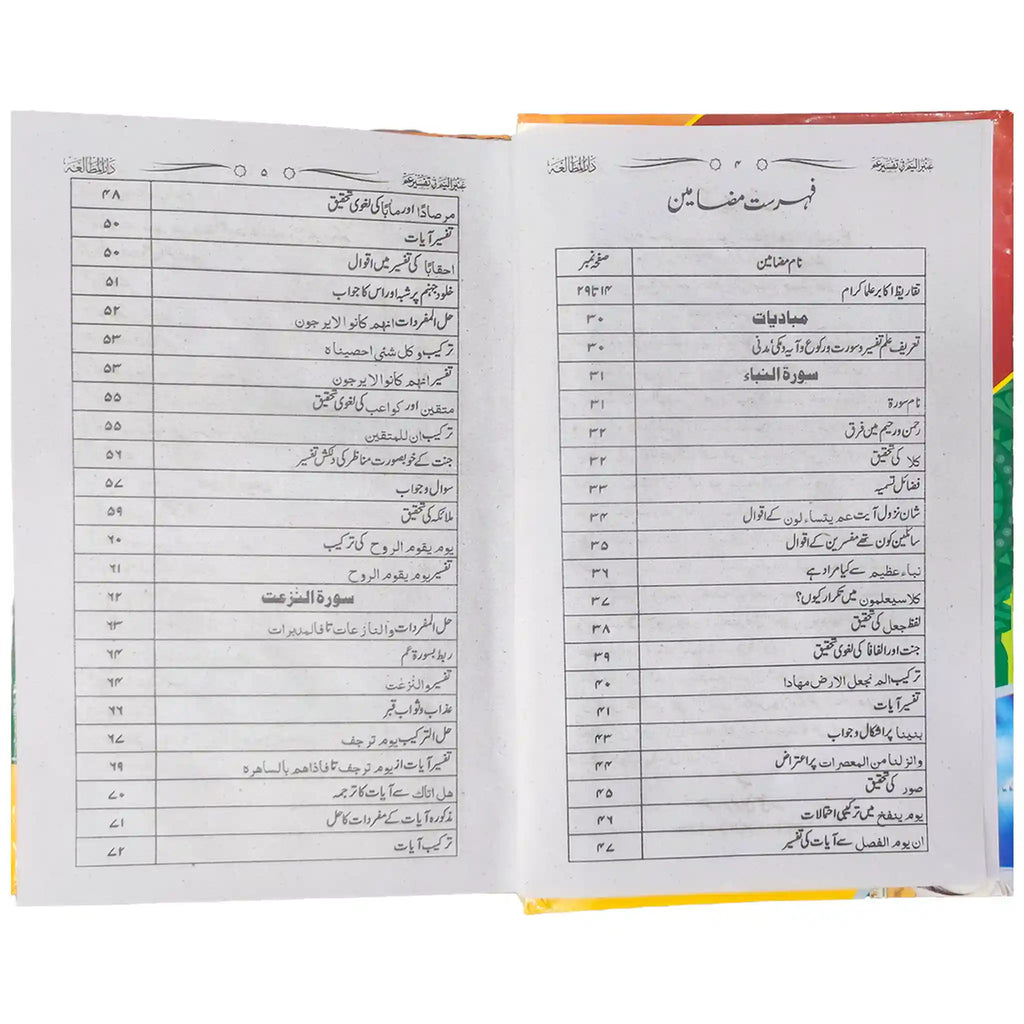 عنبر الیم فی تفسیر عم ۴ دار المطالعہ
فہرست مضامین
نام مضامین صفحہ نمبر
تقاریظ اکابر علما کرام ۱۴ تا ۲۹
مبادیات ۳۰
تعریف علم تفسیر و سورت و رکوع و آیہ و مکی مدنی ۳۰
سورۃ النباء ۳۱
نام سورۃ ۳۱
رحمن و رحیم مین فرق ۳۲
کلا کی تحقیق ۳۲
فضائل تسمیہ ۳۳
شان نزول آیت عم یتساءلون کے اقوال ۳۴
سائلین کون تھے مفسرین کے اقوال ۳۵
نباء عظیم سے کیا مراد ہے ۳۶
کلا سیعلمون میں تکرار کیوں؟ ۳۷
لفظ جعل کی تحقیق ۳۸
جنت اور الفافا کی لغوی تحقیق ۳۹
ترکیب الم نجعل الارض مھادا ۴۰
تفسیر آیات ۴۱
بنینا پر اشکال و جواب ۴۳
وانزلنا من المعصرات پر اعتراض ۴۴
صور کی تحقیق ۴۵
یوم ینفخ میں ترکیبی احتمالات ۴۶
ان یوم الفصل سے آیات کی تفسیر ۴۷
عنبر الیم فی تفسیر عم ۵ دار المطالعہ
مرصادًا اور ماٰبًا کی لغوی تحقیق ۴۸
تفسیر آیات ۵۰
احقابًا کی تفسیر میں اقوال ۵۰
خلود جہنم پر شبہ اور اس کا جواب ۵۱
حل المفردات انھم کانوا لا یرجون ۵۲
ترکیب و کل شئی احصیناہ ۵۳
تفسیر انھم کانوا لا یرجون ۵۳
متقین اور کواعب کی لغوی تحقیق ۵۵
ترکیب ان للمتقین ۵۵
جنت کے خوبصورت مناظر کی دلکش تفسیر ۵۶
سوال و جواب ۵۷
ملائکہ کی تحقیق ۵۹
یوم یقوم الروح کی ترکیب ۶۰
تفسیر یوم یقوم الروح ۶۱
سورۃ النٰزعٰت ۶۲
حل المفردات والنازعات تا فالمدبرات ۶۳
ربط بسورۃ عم ۶۴
تفسیر والنّٰزعٰت ۶۴
عذاب و ثواب قبر ۶۶
حل الترکیب یوم ترجف ۶۷
تفسیر آیات از یوم ترجف تا فاذاھم بالساھرہ ۶۹
ھل اتاک سے آیات کا ترجمہ ۷۰
مذکورہ آیات کے مفردات کا حل ۷۱
ترکیب آیات ۷۲